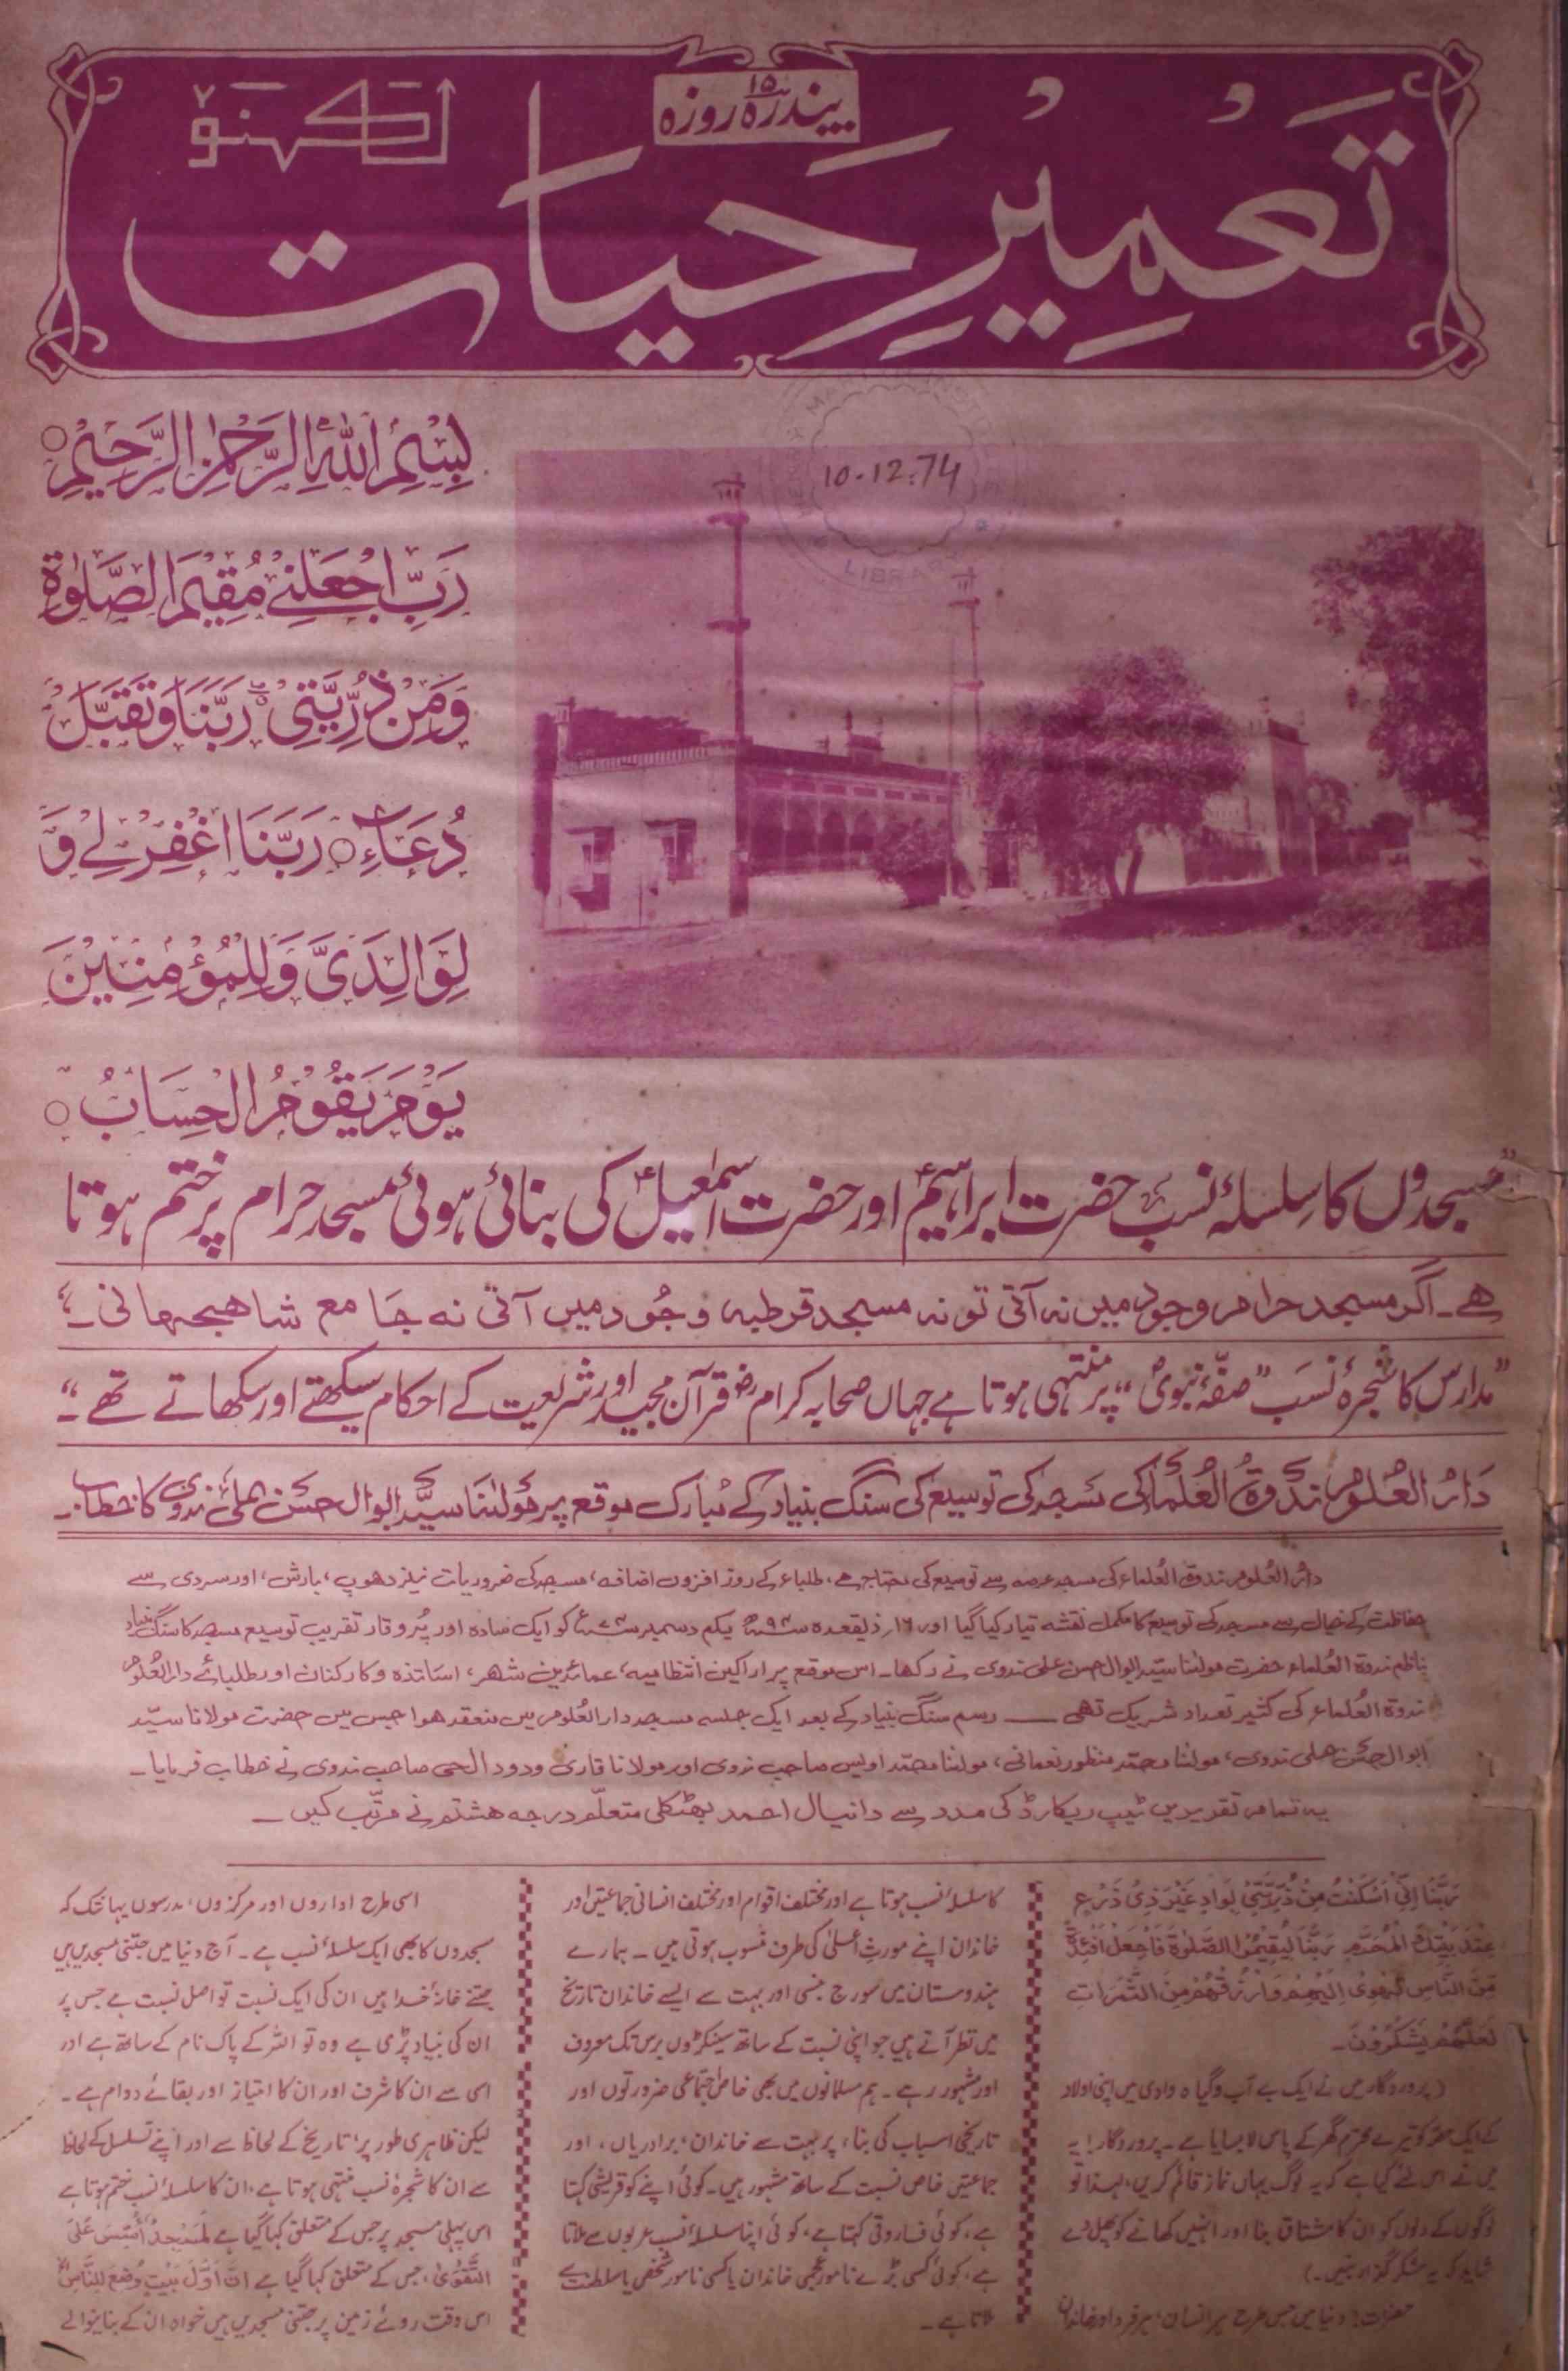 پندرہ روزہ
۱۵
لکھنؤ
تعمیرِ حیات
10.12.74
LIBRARY
بِسْمِ اللّٰهِ الرَّحْمٰنِ الرَّحِيْمِ ○
رَبِّ اجْعَلْنِيْ مُقِيْمَ الصَّلٰوةِ
وَمِنْ ذُرِّيَّتِيْ رَبَّنَا وَتَقَبَّلْ
دُعَآءِ ○ رَبَّنَا اغْفِرْ لِيْ وَ
لِوَالِدَيَّ وَلِلْمُؤْمِنِيْنَ
يَوْمَ يَقُوْمُ الْحِسَابُ ○
”مسجدوں کا سلسلۂ نسب حضرت ابراہیمؑ اور حضرت اسمٰعیلؑ کی بنائی ہوئی مسجد حرام پر ختم ہوتا
ھے۔ اگر مسجد حرام وجود میں نہ آتی تو نہ مسجد قرطبہ وجود میں آتی نہ جامع شاھجہانی۔“
”مدارس کا شجرۂ نسب ”صفّۂ نبویؐ“ پر منتہی ہوتا ہے جہاں صحابہ کرامؓ قرآن مجید اور شریعت کے احکام سیکھتے اور سکھاتے تھے۔“
دارُ العلوم ندوۃُ العلماء کی مسجد کی توسیع کی سنگ بنیاد کے مُبارک موقع پر مولٰنا سیّد ابوالحسن علی ندوی کا خطاب۔
دارُ العُلوم ندوۃ العُلماء کی مسجد عرصہ سے توسیع کی محتاج ھے، طلباء کے روز افزوں اضافہ، مسجد کی ضروریات نیز دھوپ، بارش، اور سردی سے
حفاظت کے خیال سے مسجد کی توسیع کا مکمل نقشہ تیار کیا گیا اور ۱۶؍ ذیقعدہ سنہ ۹۴ھ یکم دسمبر سنہ ۷۴ء کو ایک سادہ اور پُر وقار تقریب توسیع مسجد کا سنگ بنیاد
ناظم ندوۃ العُلماء حضرت مولٰنا سیّد ابوالحسن علی ندوی نے رکھا۔ اس موقع پر اراکین انتظامیہ، عمائدین شھر، اساتذہ و کارکنان اور طلبائے دارالعُلوم
ندوۃ العُلماء کی کثیر تعداد شریک تھی —— رسم سنگ بنیاد کے بعد ایک جلسہ مسجد دارالعُلوم میں منعقد ھوا جس میں حضرت مولانا سیّد
ابوالحسن علی ندوی، مولٰنا محمّد منظور نعمانی، مولٰنا محمّد اویس صاحب ندوی اور مولانا قاری ودود الحی صاحب ندوی نے خطاب فرمایا۔
یہ تمام تقریریں ٹیپ ریکارڈ کی مدد سے دانیال احمد بھٹکلی متعلّم درجہ ھشتم نے مرتّب کیں۔
رَبَّنَا اِنِّيْ اَسْكَنْتُ مِنْ ذُرِّيَّتِيْ بِوَادٍ غَيْرِ ذِيْ زَرْعٍ
عِنْدَ بَيْتِكَ الْمُحَرَّمِ رَبَّنَا لِيُقِيْمُوا الصَّلٰوةَ فَاجْعَلْ اَفْئِدَةً
مِّنَ النَّاسِ تَهْوِيْ اِلَيْهِمْ وَارْزُقْهُمْ مِنَ الثَّمَرَاتِ
لَعَلَّهُمْ يَشْكُرُوْنَ۔
(پروردگار میں نے ایک بے آب و گیاہ وادی میں اپنی اولاد
کے ایک حصّہ کو تیرے محترم گھر کے پاس لا بسایا ہے۔ پروردگار! یہ
میں نے اس لئے کیا ہے کہ یہ لوگ یہاں نماز قائم کریں، لہذا تو
لوگوں کے دلوں کو ان کا مشتاق بنا اور انہیں کھانے کو پھل دے
شاید کہ یہ شکر گزار بنیں۔)
حضرات! دنیا میں جس طرح ہر انسان، ہر فرد اور خاندان
کا سلسلۂ نسب ہوتا ہے اور مختلف اقوام اور مختلف انسانی جماعتیں اور
خاندان اپنے مورثِ اعلٰی کی طرف منسوب ہوتی ہیں۔ ہمارے
ہندوستان میں سورج بنسی اور بہت سے ایسے خاندان تاریخ
میں نظر آتے ہیں جو اپنی نسبت کے ساتھ سینکڑوں برس تک معروف
اور مشہور رہے۔ ہم مسلمانوں میں بھی خاص اجتماعی ضرورتوں اور
تاریخی اسباب کی بناء پر بہت سے خاندان، برادریاں، اور
جماعتیں خاص نسبت کے ساتھ مشہور ہیں۔ کوئی اپنے کو قریشی کہتا
ہے، کوئی فاروقی کہتا ہے، کوئی اپنا سلسلۂ نسب عربوں سے ملاتا
ہے، کوئی کسی بڑے نامور عجمی خاندان یا کسی نامور شخص یا سلطنت سے
ملاتا ہے۔
اسی طرح اداروں اور مرکزوں، مدرسوں یہانتک کہ
مسجدوں کا بھی ایک سلسلۂ نسب ہے۔ آج دنیا میں جتنی مسجدیں ہیں
جتنے خانۂ خدا ہیں ان کی ایک نسبت تو اصل نسبت ہے جس پر
ان کی بنیاد پڑی ہے وہ تو اللہ کے پاک نام کے ساتھ ہے اور
اسی سے ان کا شرف اور ان کا امتیاز اور بقائے دوام ہے۔
لیکن ظاہری طور پر، تاریخ کے لحاظ سے اور اپنے تسلسل کے لحاظ
سے ان کا شجرۂ نسب منتہی ہوتا ہے، ان کا سلسلۂ نسب ختم ہوتا ہے
اس پہلی مسجد پر جس کے متعلق کہا گیا ہے لَمَسْجِدٌ اُسِّسَ عَلَى
التَّقْوٰى، جس کے متعلق کہا گیا ہے اِنَّ اَوَّلَ بَيْتٍ وُضِعَ لِلنَّاسِ
اس وقت روئے زمین پر جتنی مسجدیں ہیں خواہ ان کے بنانیوالے